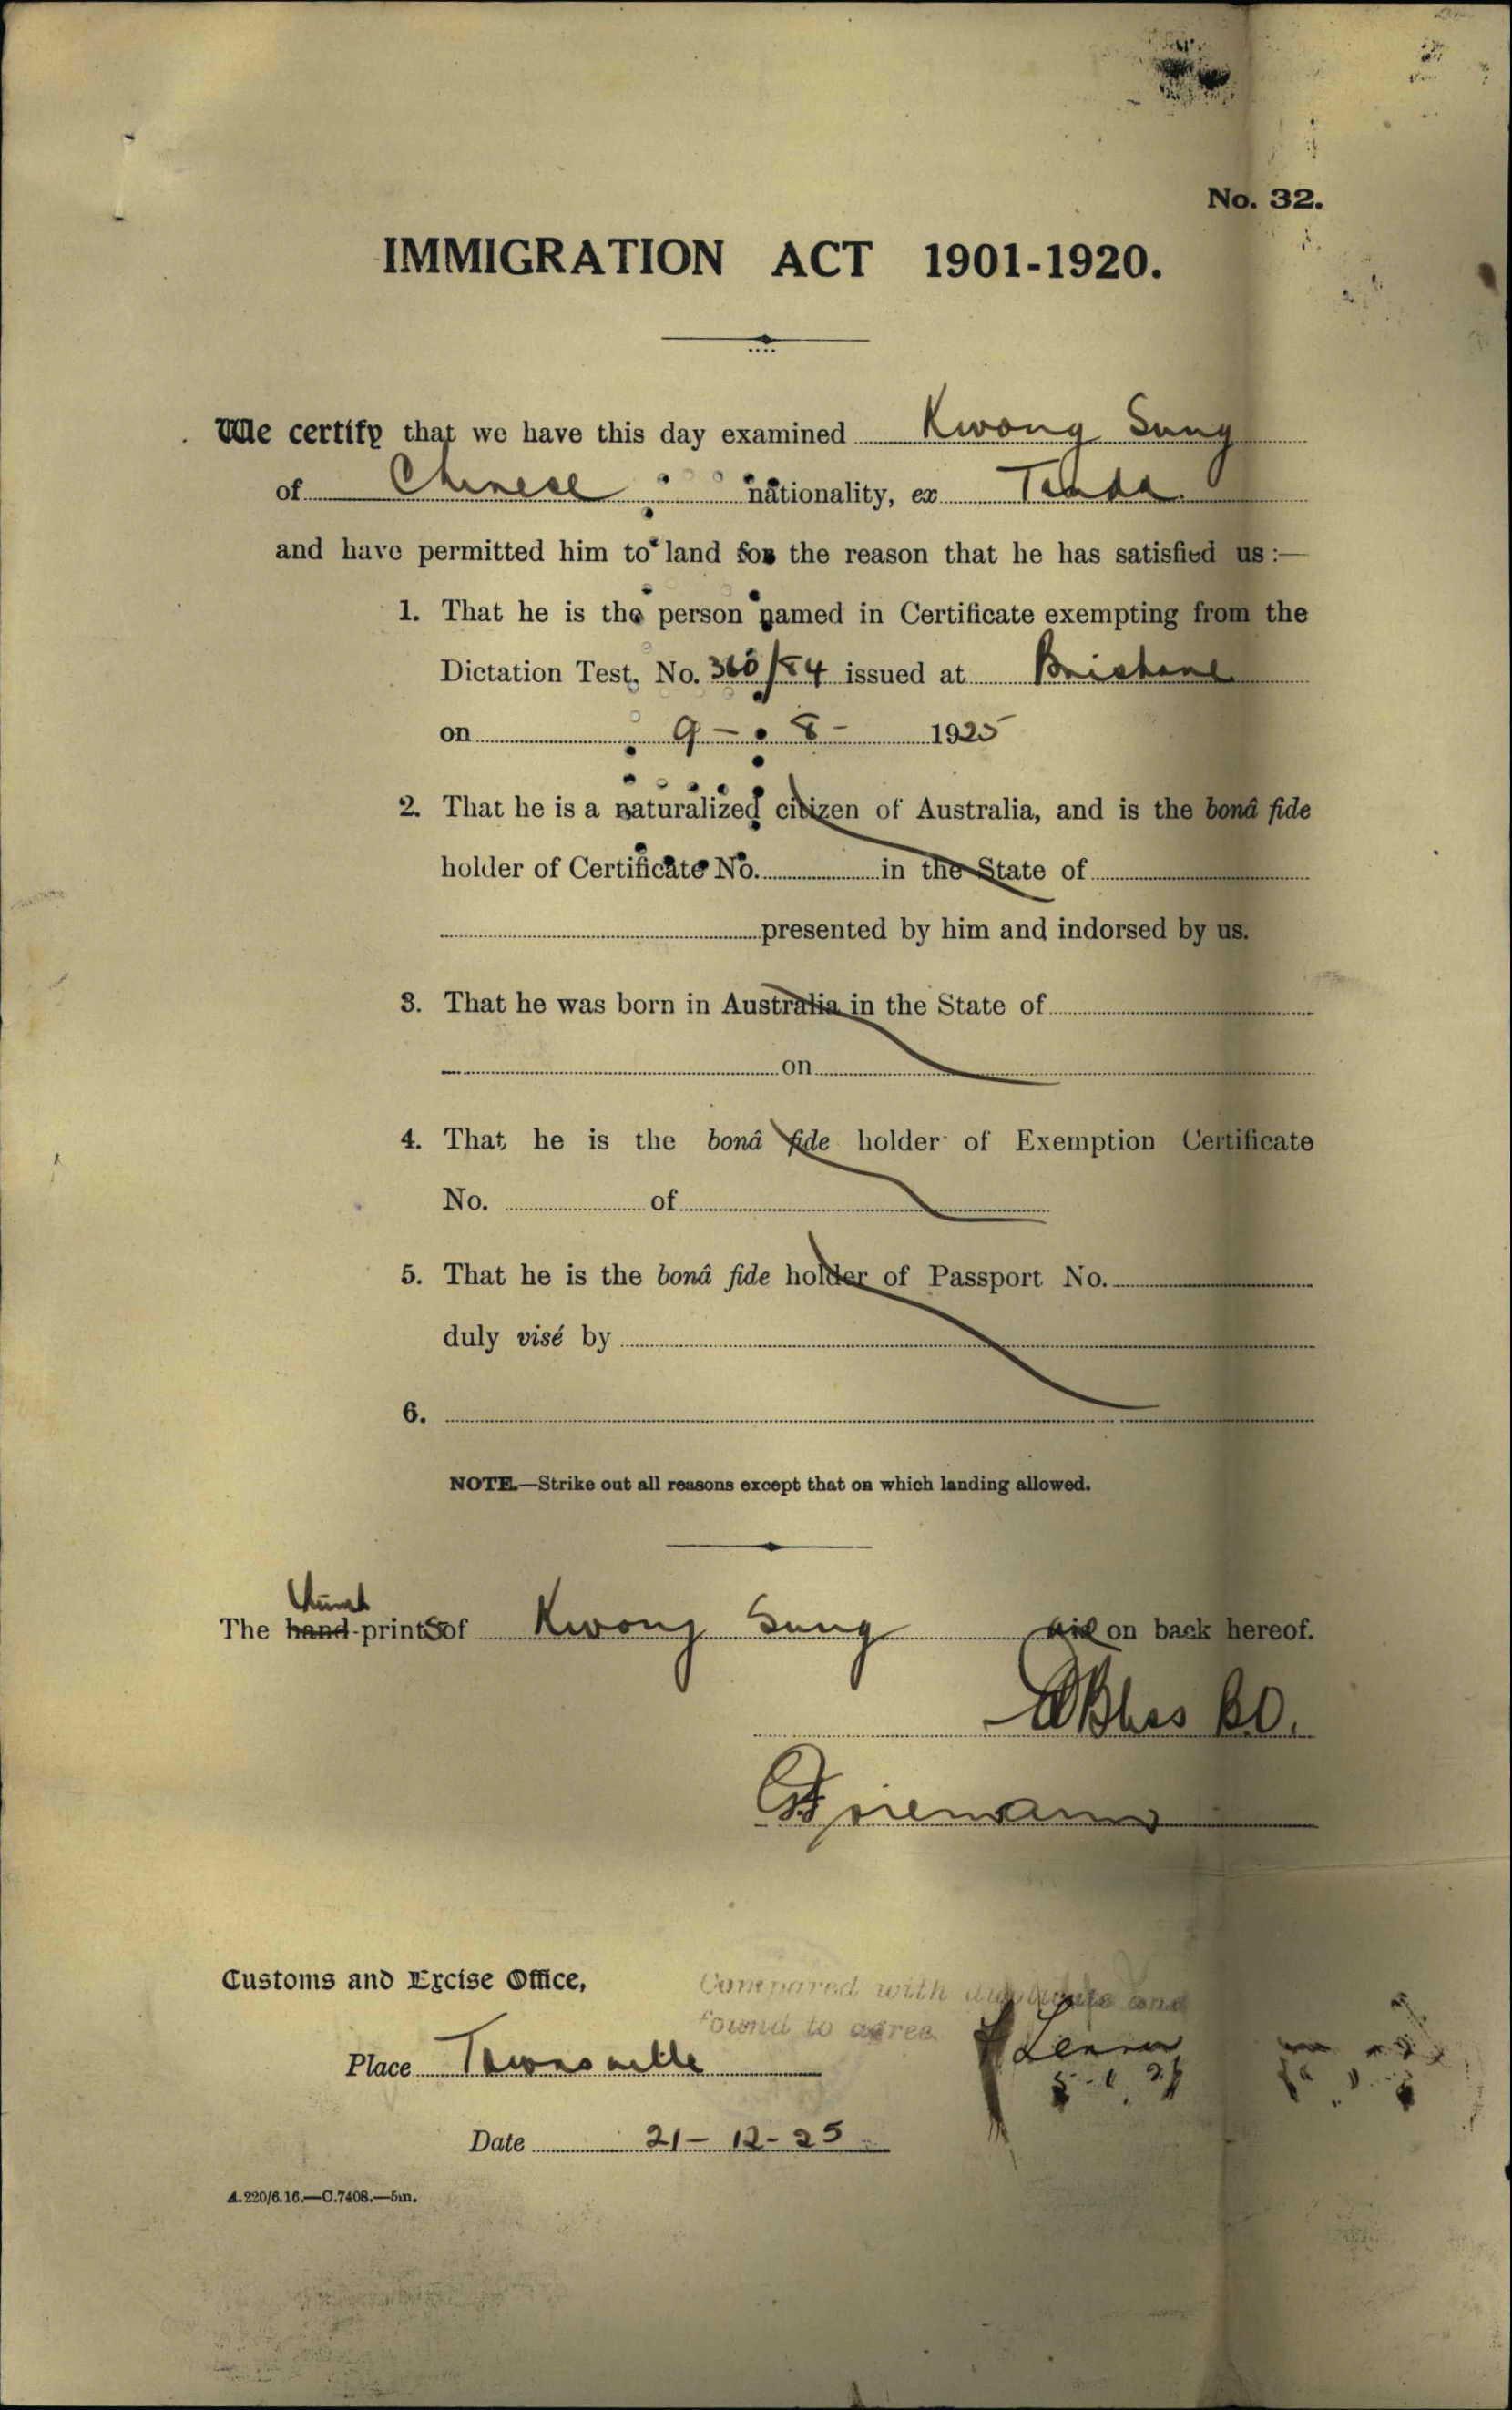 No. 32.
IMMIGRATION ACT 1901-1920.
We certify that we have this day examined Kwong Sung
of Chinese nationality, ex Tanda
and have permitted him to land for the reason that he has satisfied us :—
1. That he is the person named in Certificate exempting from the
Dictation Test, No. 360/54 issued at Brisbane
on 9 - 8 - 1925
2. That he is a naturalized citizen of Australia, and is the bonâ fide
holder of Certificate No. in the State of
presented by him and indorsed by us.
3. That he was born in Australia in the State of
on
4. That he is the bonâ fide holder of Exemption Certificate
No. of
5. That he is the bonâ fide holder of Passport No.
duly visé by
6.
NOTE.—Strike out all reasons except that on which landing allowed.
Thumb
The hand-prints of Kwong Sung on back hereof.
Customs and Excise Office,
Compared with duplicate and
found to agree
Place Townsville
Date 21 - 12 - 25
A.220/6.16.—C.7408.—5m.